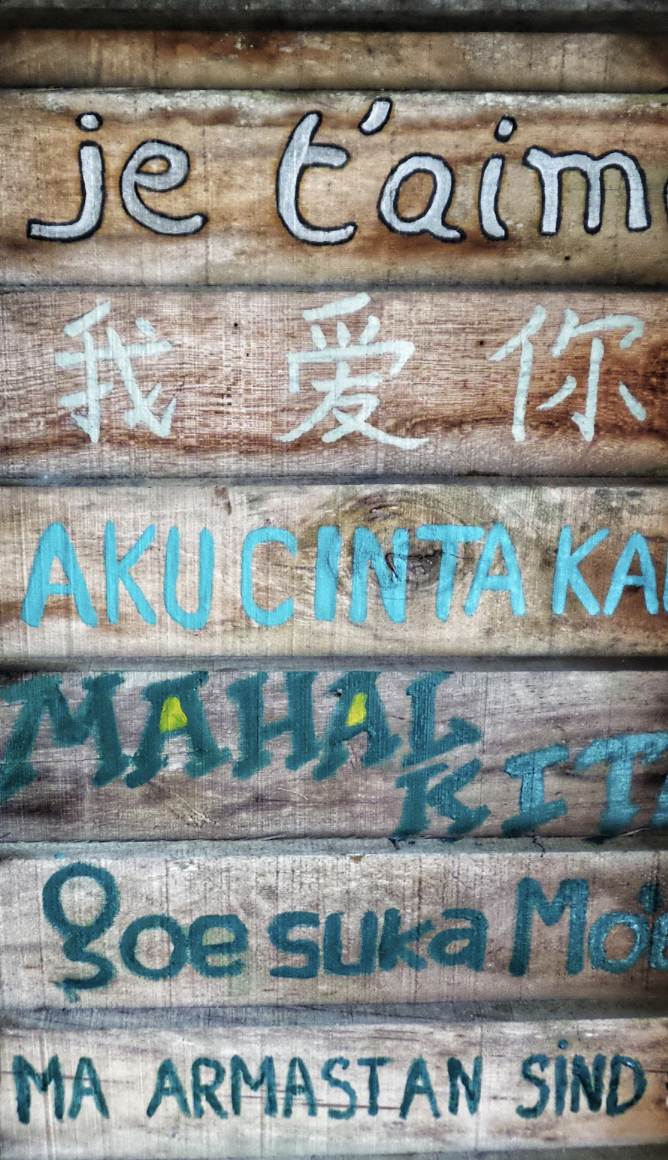 je t'aim
我爱你
AKU CINTA KA
MAHAL
KIT
goe suka Mo
MA ARMASTAN SiND